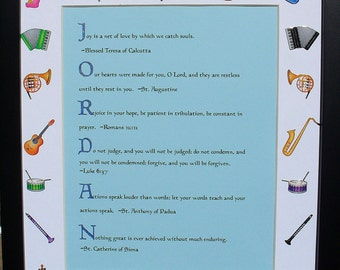 Joy is a net of love by which we catch souls.
~Blessed Teresa of Calcutta
Our hearts were made for you, O Lord, and they are restless
until they rest in you. ~St. Augustine
Rejoice in your hope, be patient in tribulation, be constant in
prayer. ~Romans 12:12
Do not judge, and you will not be judged; do not condemn, and
you will not be condemned; forgive, and you will be forgiven.
~Luke 6:37
Actions speak louder than words; let your words teach and your
actions speak. ~St. Anthony of Padua
Nothing great is ever achieved without much enduring.
~St. Catherine of Siena